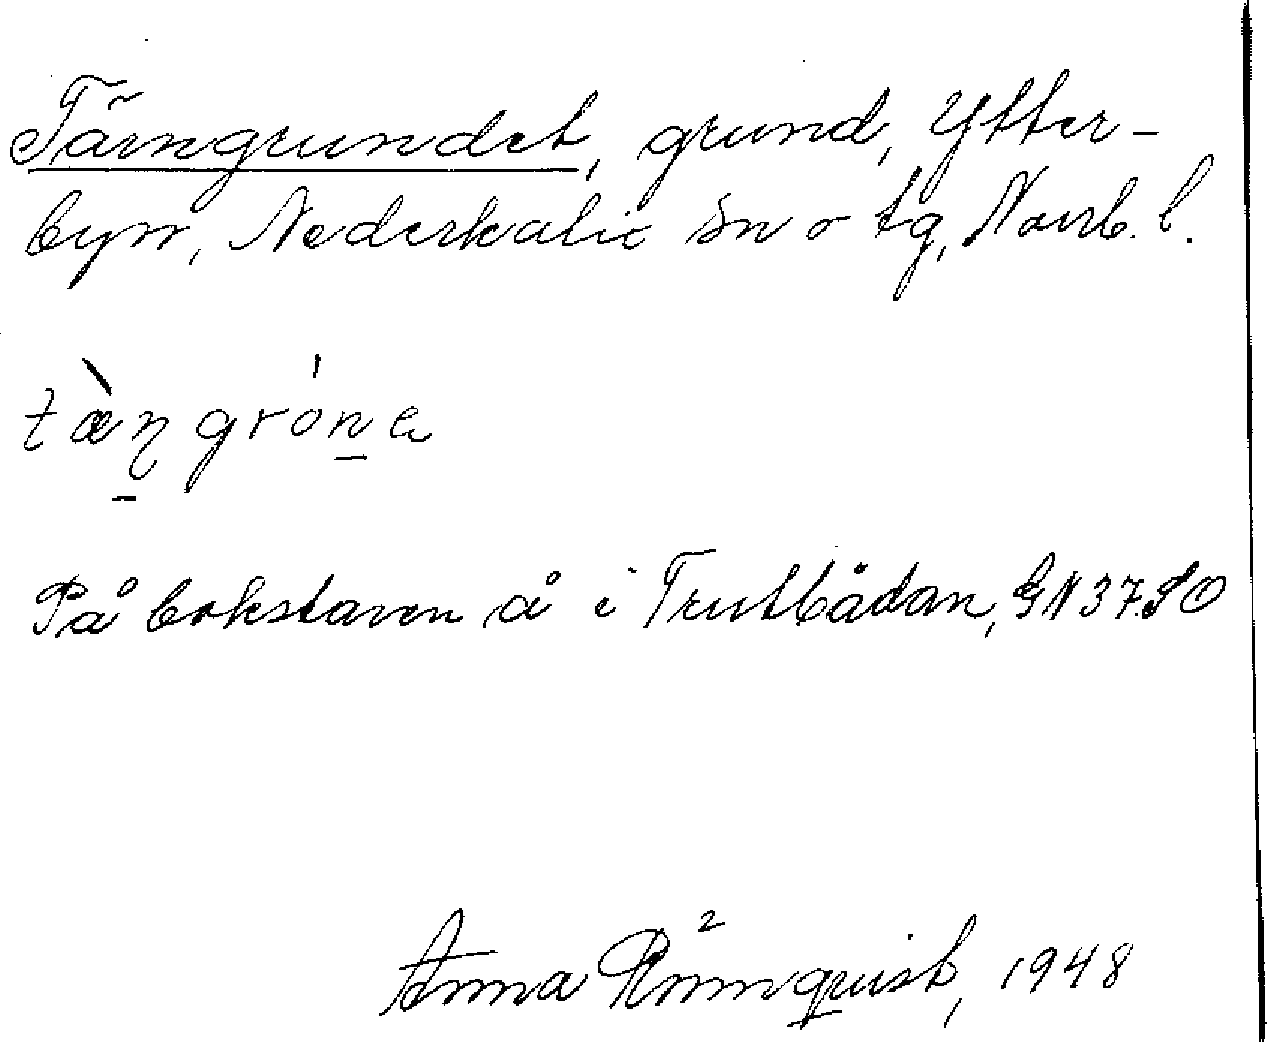 Tärngrundet, grund, Ytter-
byn, Nederkalix sn o tg, Norrb. l.
tæ̀n gróna
På bokstaven å i Trutbådan, GN 37 SO
Anna Rönnquist, 1948